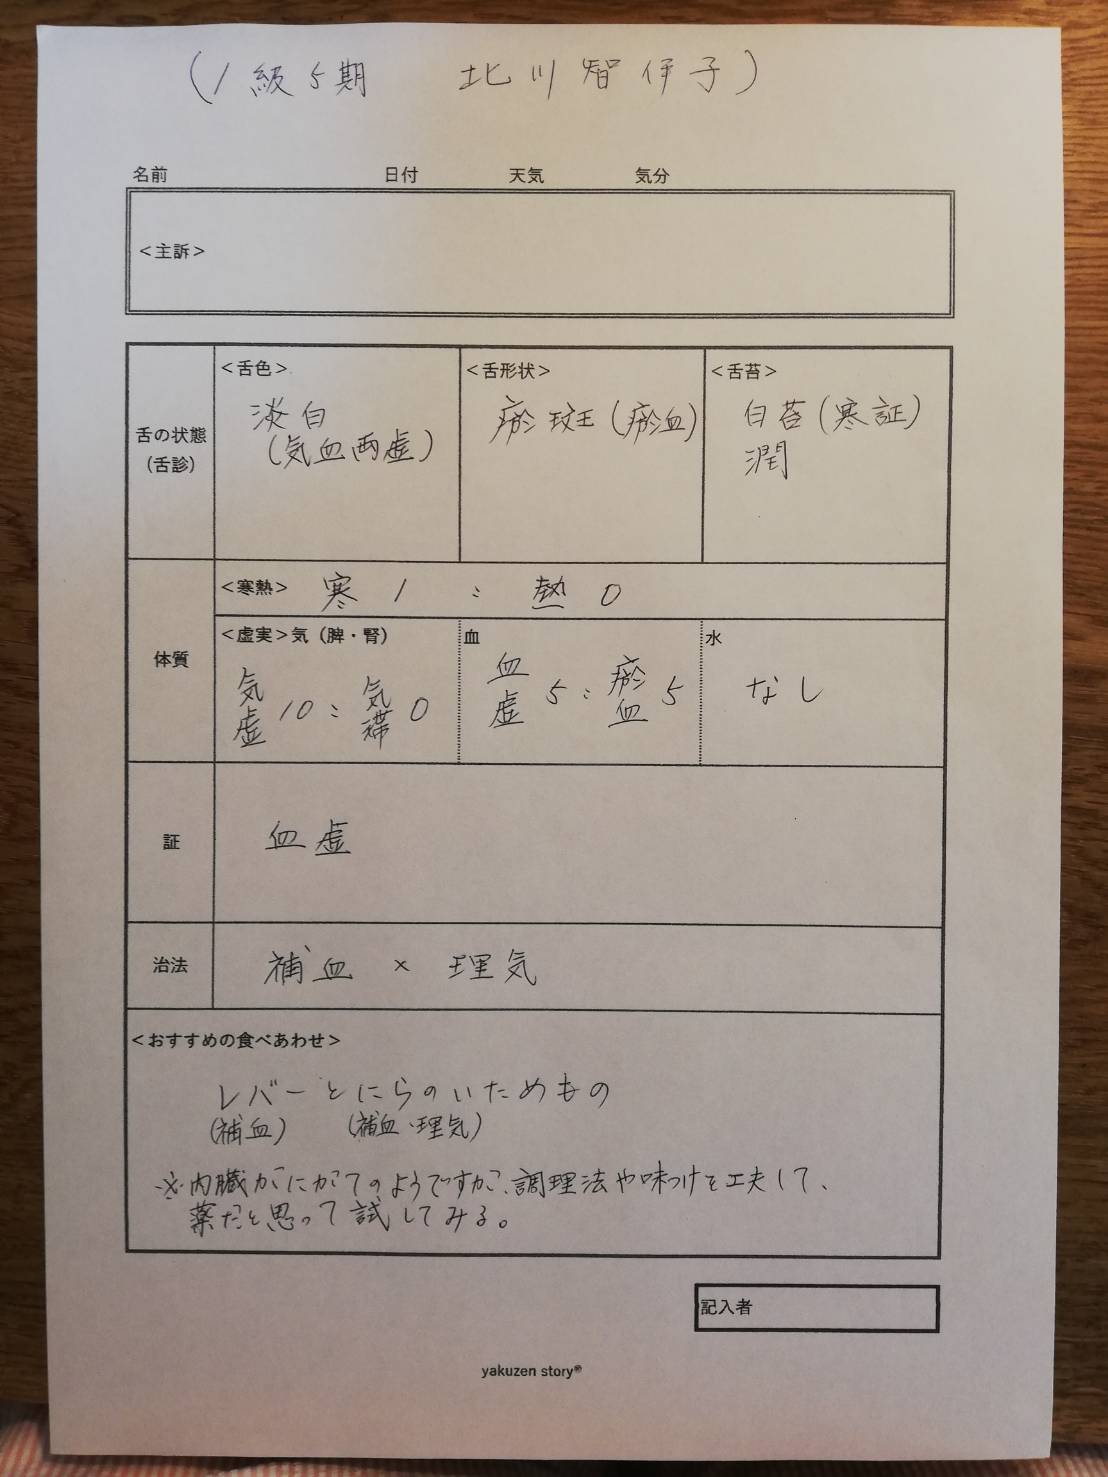 (1級5期 北川智伊子)
名前 日付 天気 気分
<主訴>
舌の状態
(舌診)
<舌色>
淡白
(気血両虚)
<舌形状>
瘀斑(瘀血)
<舌苔>
白苔(寒証)
潤
体質
<寒熱> 寒 1 : 熱 0
<虚実>気(脾・腎)
気虚 10 : 気滞 0
血
血虚 5 : 瘀血 5
水
なし
証
血虚
治法
補血 × 理気
<おすすめの食べあわせ>
レバーとにらのいためもの
(補血) (補血・理気)
※内臓がにがてのようですが、調理法や味つけを工夫して、
薬だと思って試してみる。
記入者
yakuzen story®